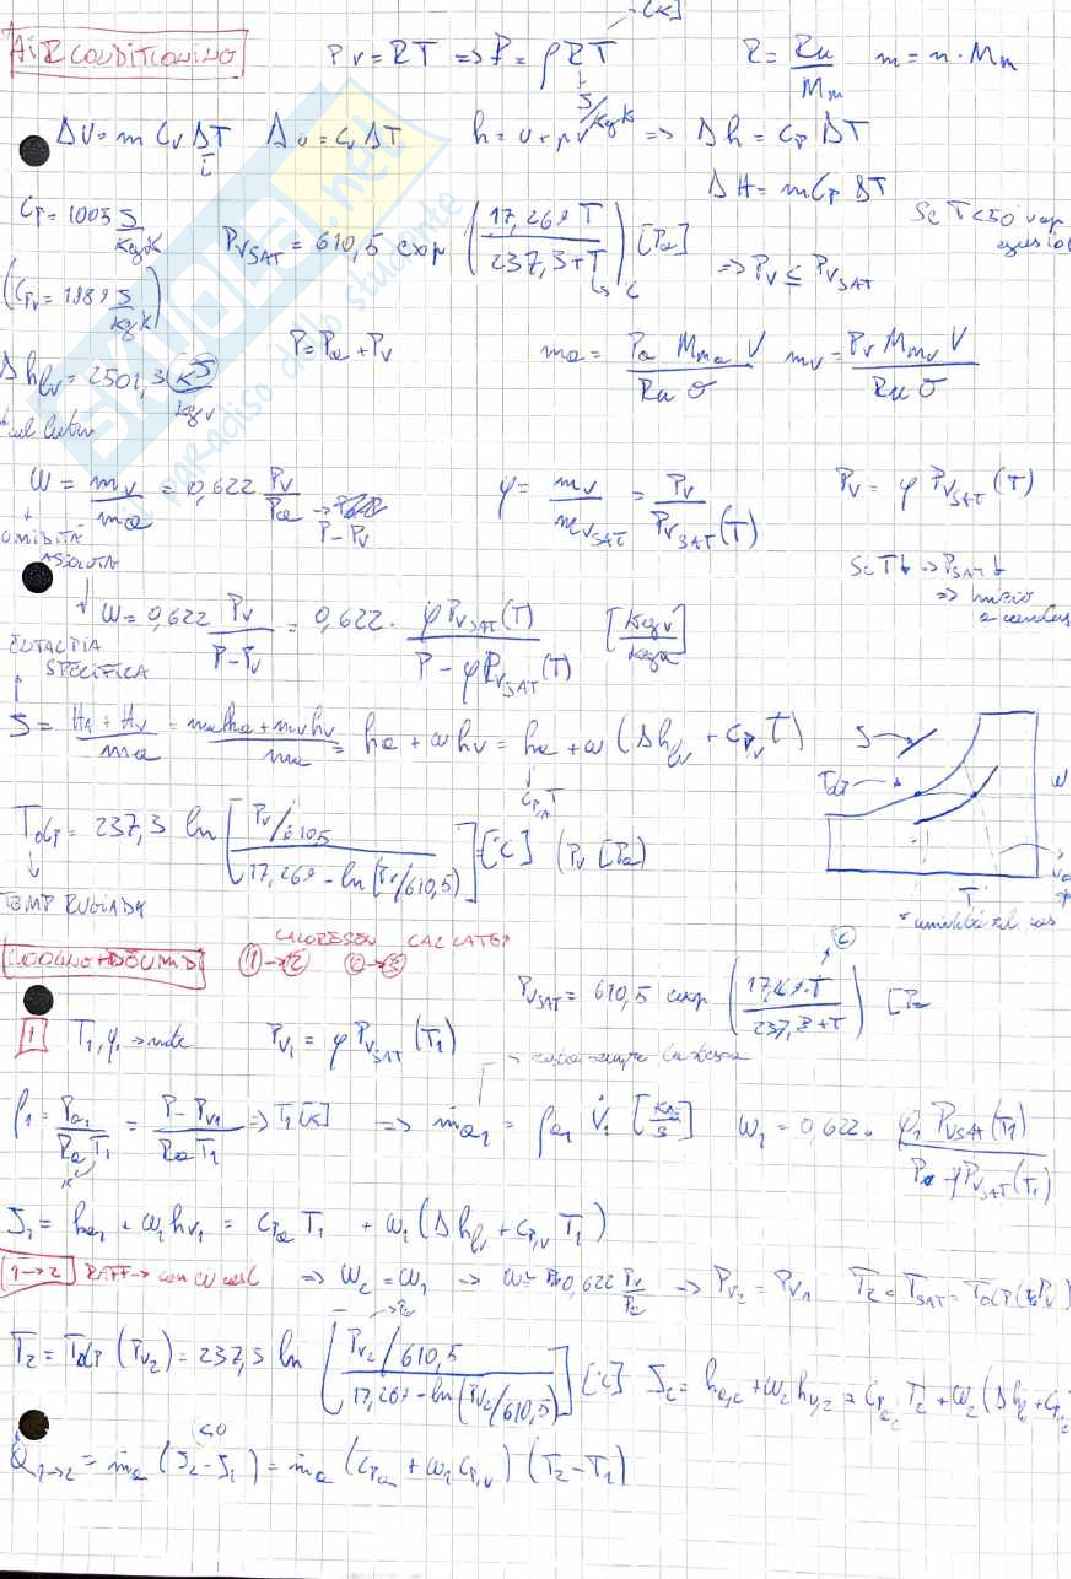 AIR CONDITIONING
Pv = RT => P = ρRT [K]
J/kgK
R = Ru/Mm m = n · Mm
ΔU = m Cv ΔT Δu = Cv ΔT h = u + pv => Δh = Cp ΔT
ΔH = m Cp ΔT
Cp = 1005 J/kgK
PvSAT = 610,5 exp (17,269 T / 237,3+T) [Pa]
=> Pv ≤ PvSAT
Se T<50
(Cpv = 1989 J/kgK)
P = Pa + Pv
ma = Pa Mma V / Ru T mv = Pv Mmv V / Ru T
Δhlv = 2501,3 kJ/kgv
ω = mv/ma = 0,622 Pv/Pa → P-Pv
φ = mv/mvSAT = Pv/PvSAT(T)
Pv = φ PvSAT(T)
UMIDITÀ ASSOLUTA
Se T↓ => PSAT↓
=> inizio
a conden
ω = 0,622 Pv/(P-Pv) = 0,622 · φPvSAT(T) / (P - φPvSAT(T)) [kgv/kga]
ENTALPIA SPECIFICA
J = (Ha + Hv)/ma = (ma ha + mv hv)/ma = ha + ωhv = ha + ω (Δhlv + Cpv T)
CpaT
J
Tdp
ω
T
Tdp = 237,3 ln [Pv/610,5 / 17,269 - ln(Pv/610,5)] [°C] (Pv [Pa])
TEMP RUGIADA
COOLING+DEUMID
1→2 2→3
PvSAT = 610,5 exp (17,269·T / 237,3+T) [Pa
1 T1, φ1 → note Pv1 = φ PvSAT (T1)
ρ1 = Pa1/RaT1 = P-Pv1/RaT1 => T1 [K] => ṁa1 = ρa1 V̇1 [kg/s] ω1 = 0,622 · φ1 PvSAT(T1) / Pa - φPvSAT(T1)
J1 = ha1 + ω1hv1 = Cpa T1 + ω1(Δhlv + Cpv T1)
1→2 RAFF → con ω cost => ω2 = ω1 → ω = 0,622 Pv/Pa → Pv2 = Pv1 T2 = TSAT = Tdp(Pv)
T2 = Tdp (Pv2) = 237,3 ln [Pv2/610,5 / 17,269 - ln(Pv2/610,5)] [°C] J2 = ha,2 + ω2hv,2 = Cpa T2 + ω2(Δhlv + Cp
<0
Q̇1→2 = ṁa (J2 - J1) = ṁa (Cpa + ω1 Cp,v) (T2 - T1)
SKUOLA.net
il paradiso dello studente